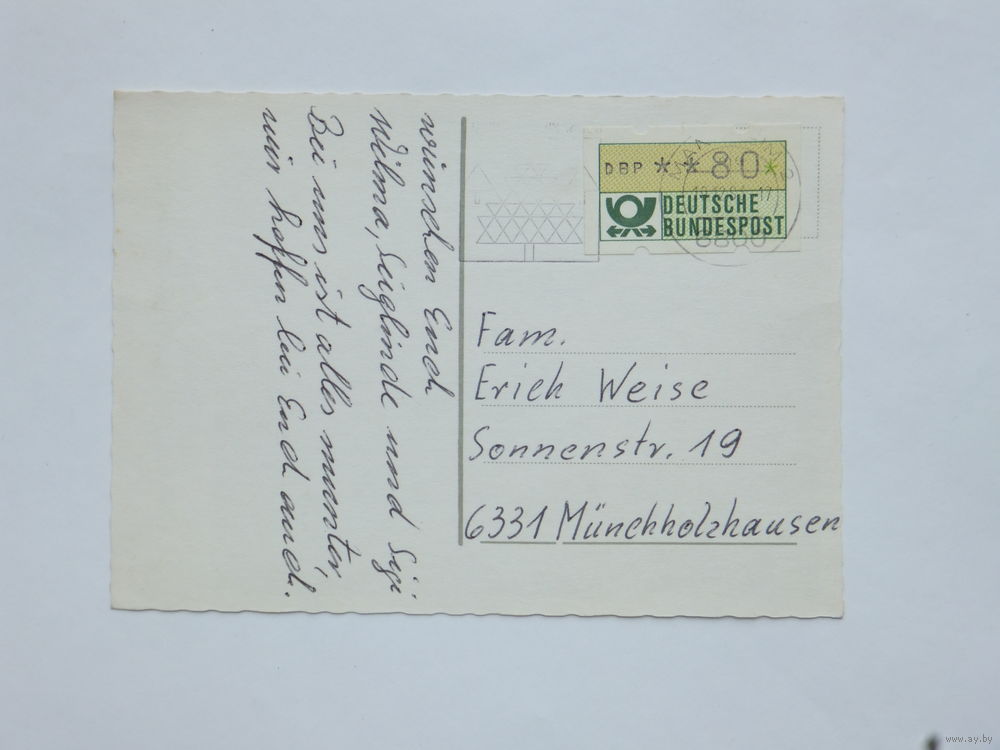 wünschen Euch
Wilma, Sieglinde und Sigi
Bei uns ist alles munter,
wir hoffen bei Euch auch.
DBP * * 80*
DEUTSCHE
BUNDESPOST
Fam.
Erich Weise
Sonnenstr. 19
6331 Münchholzhausen
www.ay.by